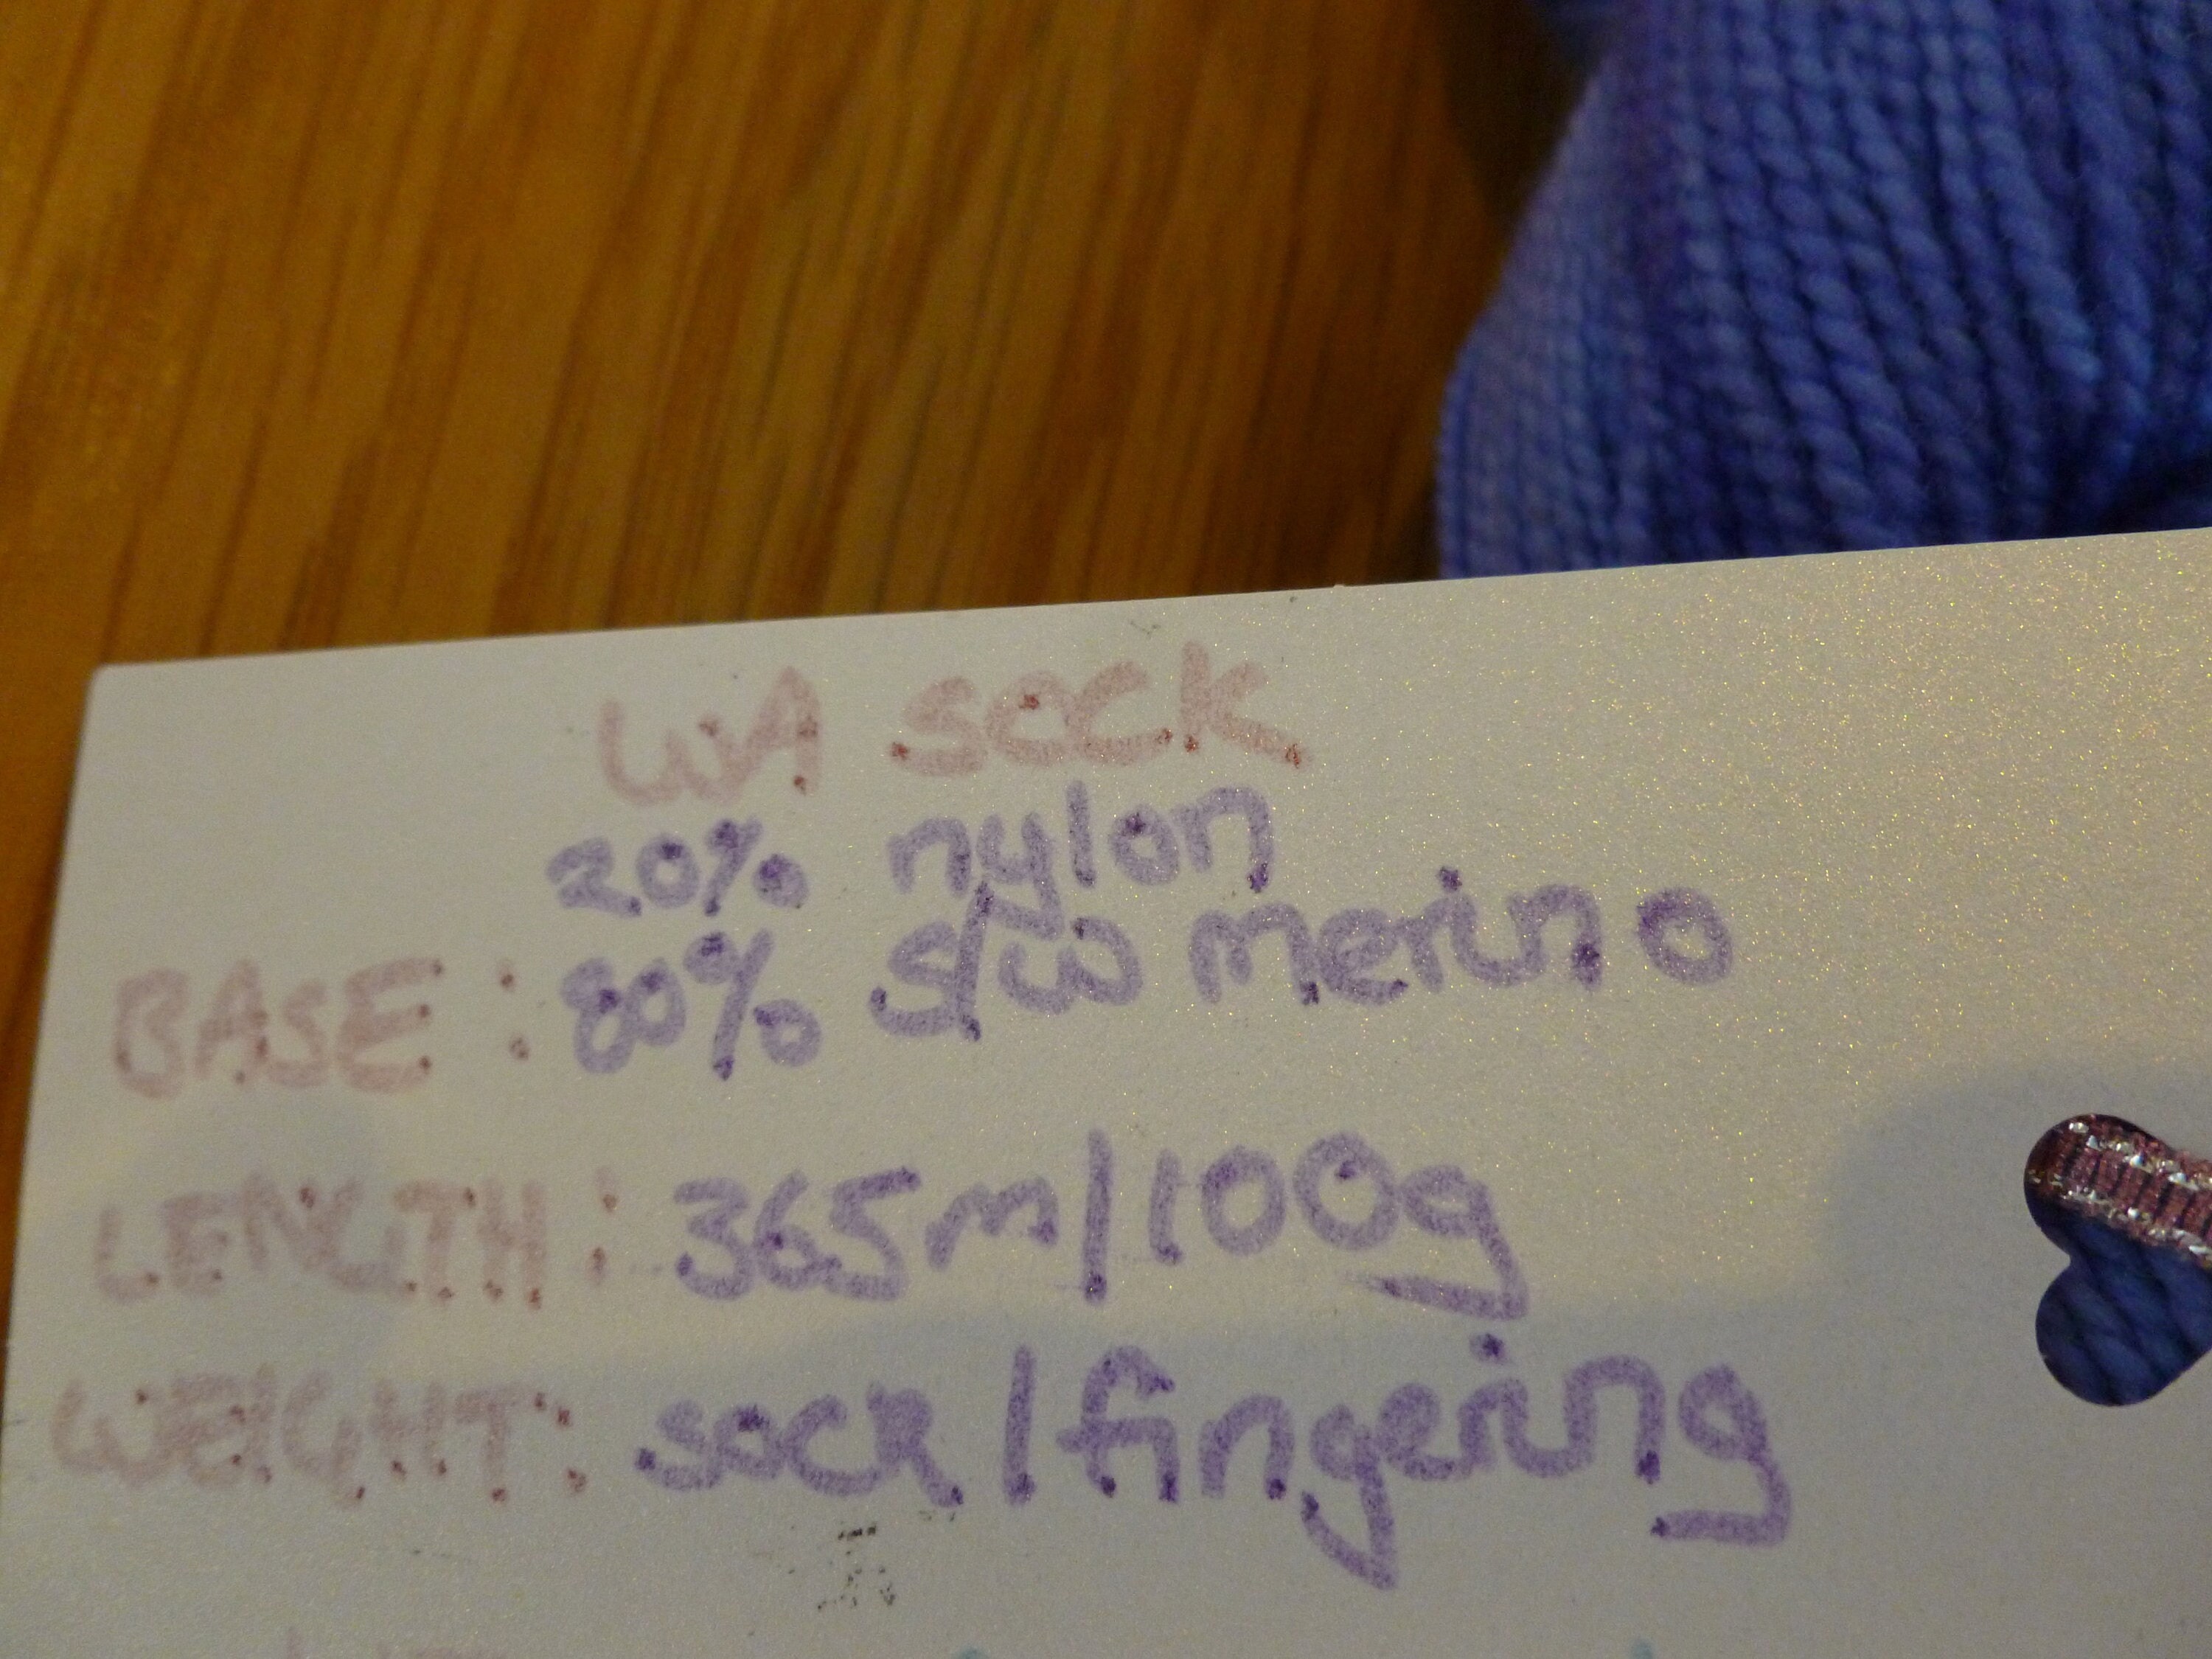 WA SOCK
20% nylon
BASE: 80% s/w merino
LENGTH: 365m/100g
WEIGHT: sock/fingering